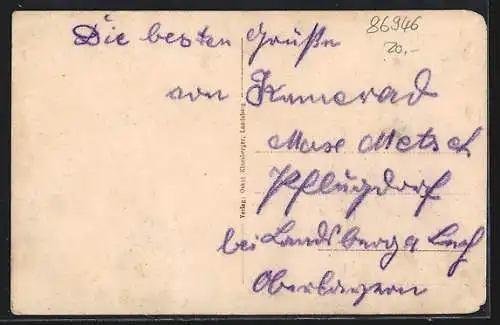 Die besten Grüße
86946
20,-
von Kamerad
Max Metsch
Pflugdorf
bei Landsberg a Lech
Oberbayern
Verlag: Oskar Elsenberger, Landsberg